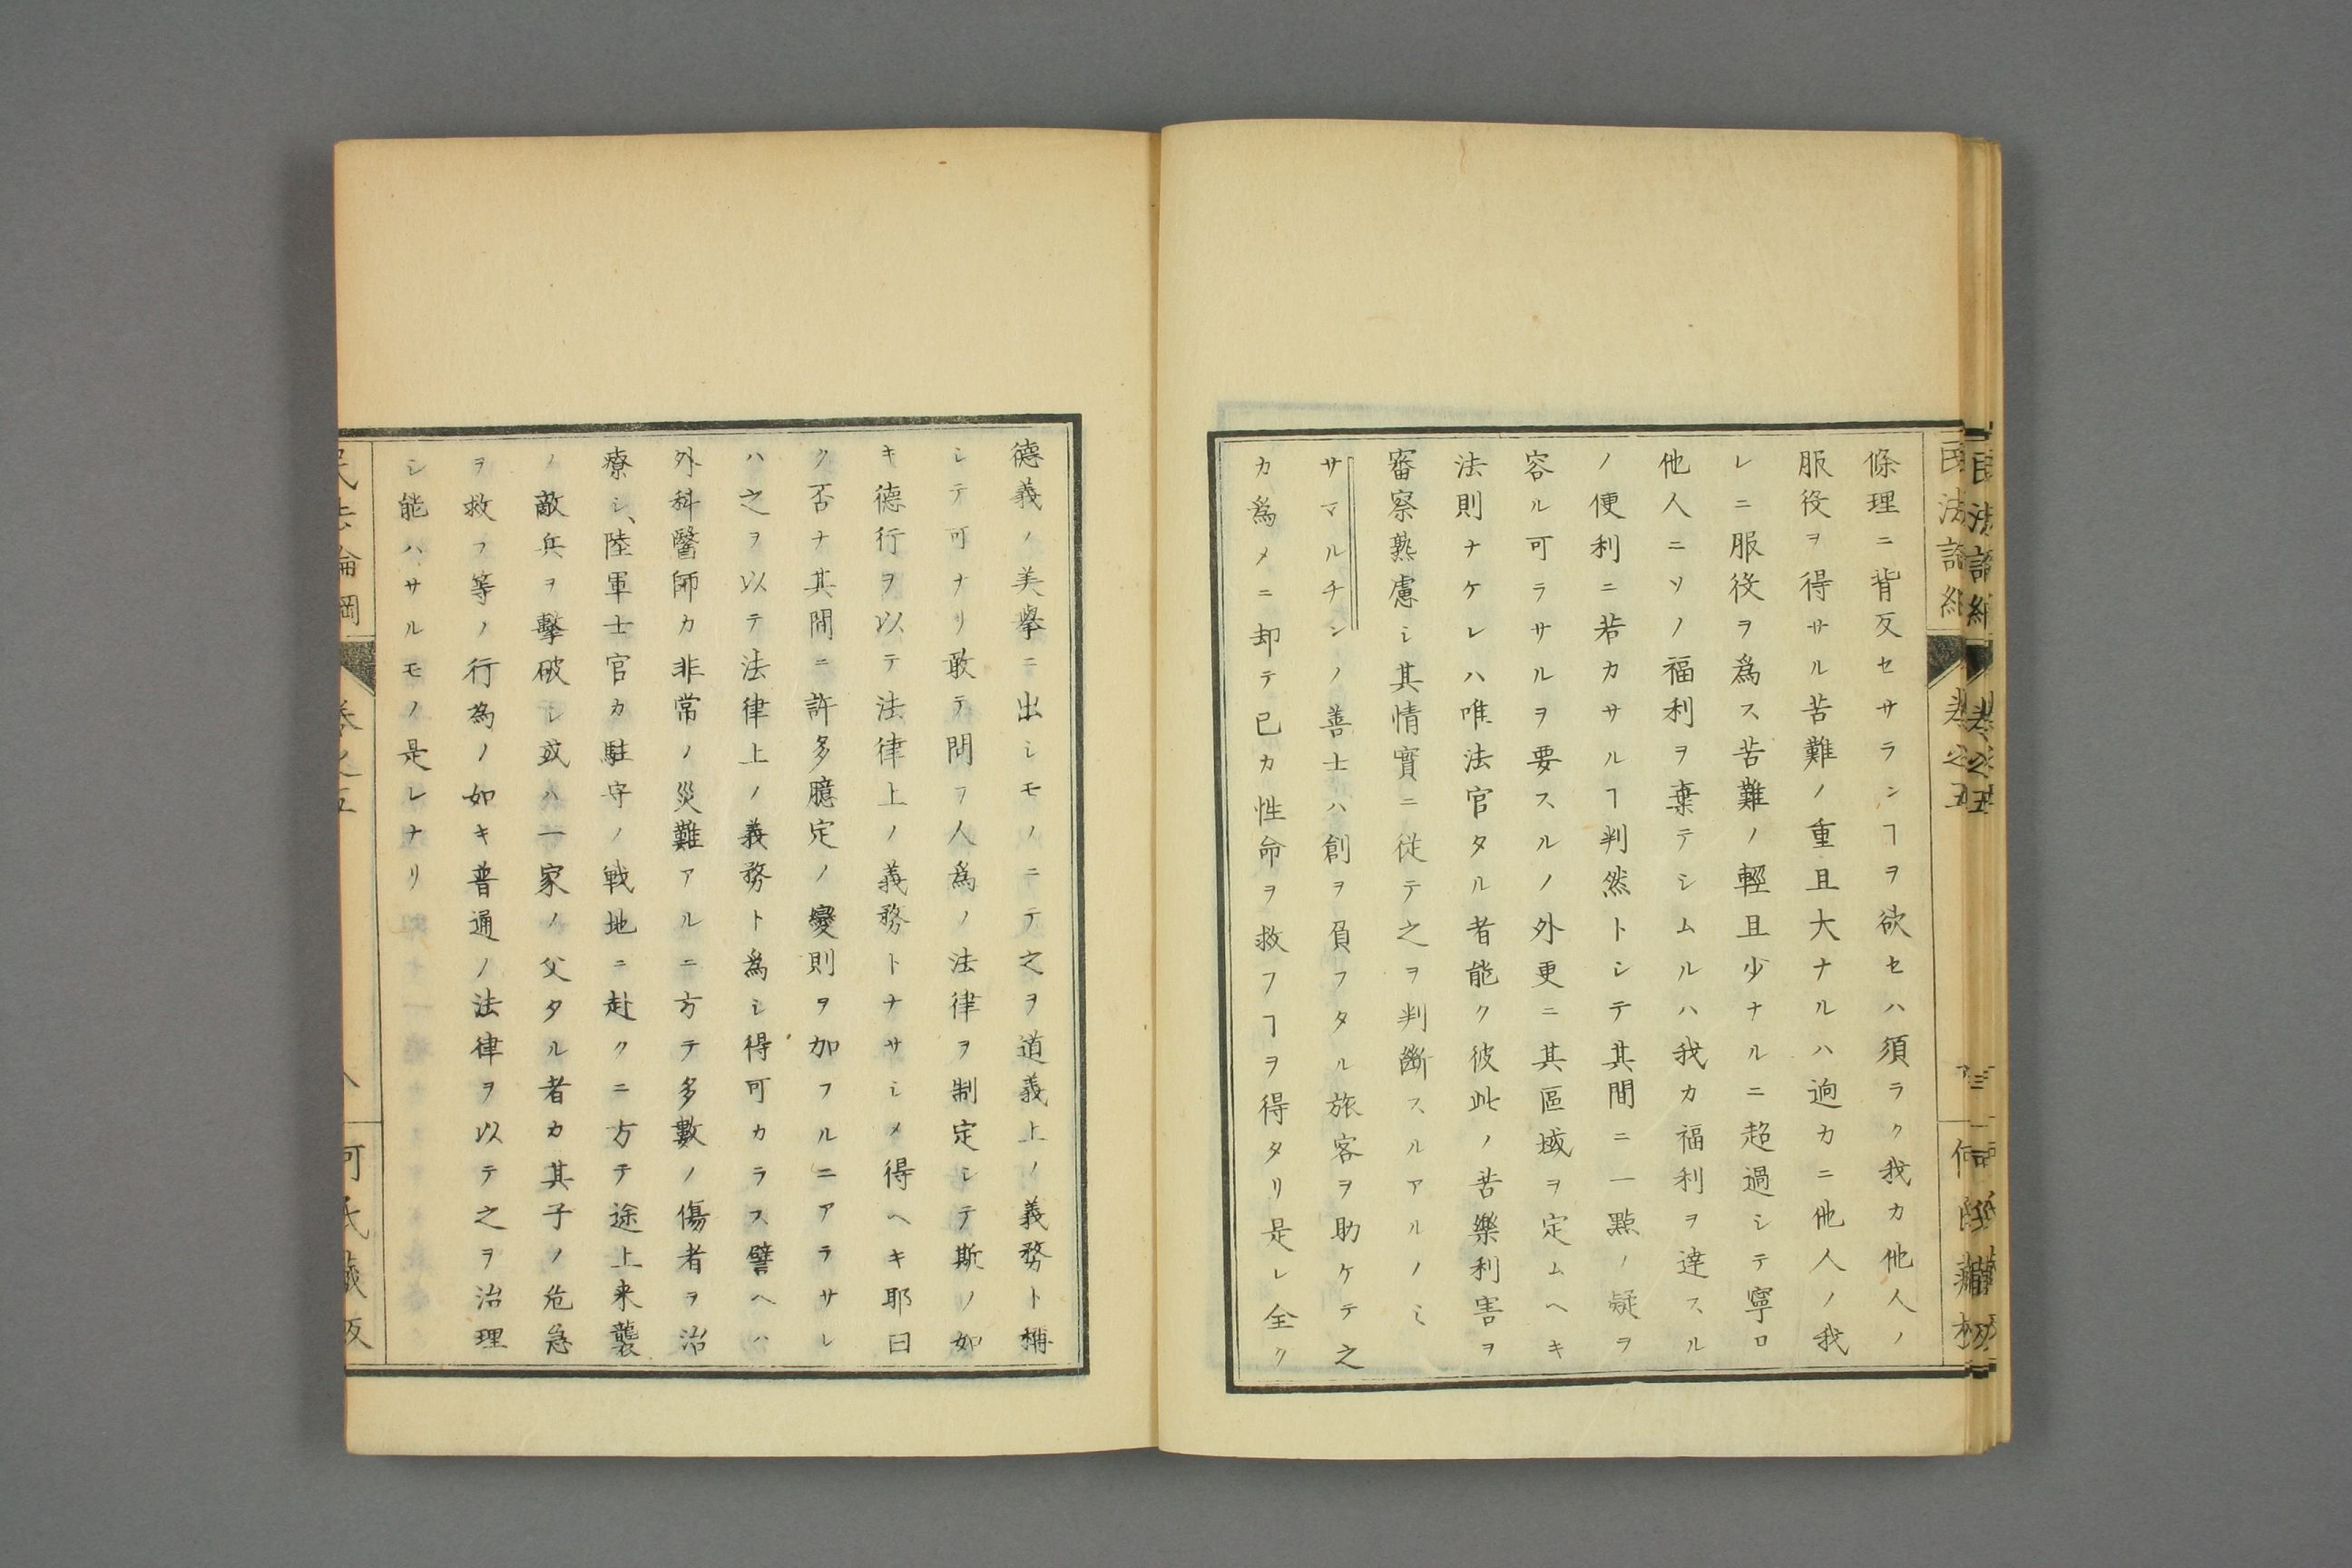 條理ニ背反セサランヿヲ欲セハ須ラク我カ他人ノ
服役ヲ得サル苦難ノ重且大ナルハ逈カニ他人ノ我
レニ服役ヲ爲ス苦難ノ輕且少ナルニ超過シテ寧ロ
他人ニソノ福利ヲ棄テシムルハ我カ福利ヲ達スル
ノ便利ニ若カサルヿ判然トシテ其間ニ一點ノ疑ヲ
容ル可ラサルヲ要スルノ外更ニ其區域ヲ定ムヘキ
法則ナケレハ唯法官タル者能ク彼此ノ苦樂利害ヲ
審察熟慮シ其情實ニ從テ之ヲ判斷スルアルノミ
サマルチンノ善士ハ創ヲ負フタル旅客ヲ助ケテ之
カ爲メニ却テ已カ性命ヲ救フヿヲ得タリ是レ全ク
德義ノ美擧ニ出シモノニテ之ヲ道義上ノ義務ト稱
シテ可ナリ敢テ問フ人爲ノ法律ヲ制定シテ斯ノ如
キ德行ヲ以テ法律上ノ義務トナサシメ得ヘキ耶曰
ク否ナ其間ニ許多臆定ノ變則ヲ加フルニアラサレ
ハ之ヲ以テ法律上ノ義務ト爲シ得可カラス譬ヘハ
外科醫師カ非常ノ災難アルニ方テ多數ノ傷者ヲ治
療シ、陸軍士官カ駐守ノ戰地ニ赴クニ方テ途上来襲
ノ敵兵ヲ擊破シ或ハ一家ノ父タル者カ其子ノ危急
ヲ救フ等ノ行為ノ如キ普通ノ法律ヲ以テ之ヲ治理
シ能ハサルモノ是レナリ
民法論綱 卷之五 八 何氏藏版